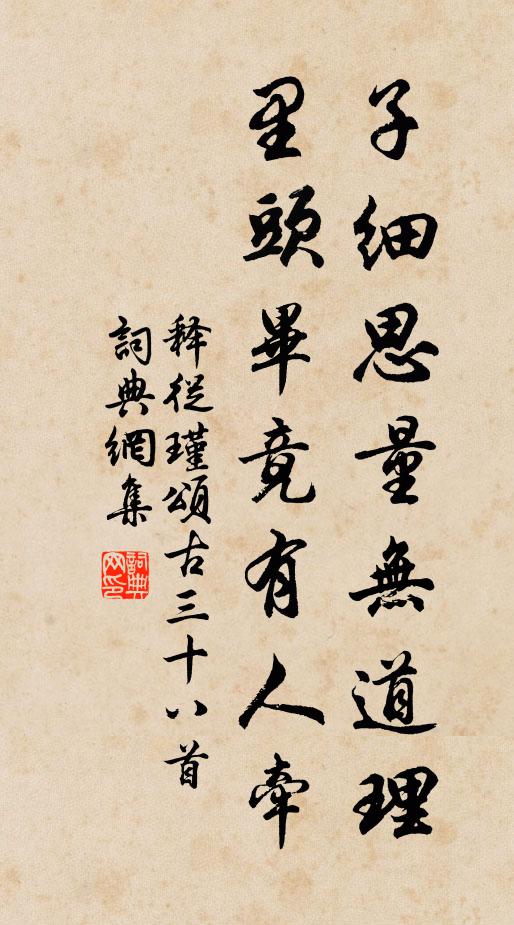 子細思量無道理
里頭畢竟有人牽
释從瑾頌古三十八首
詞典網集
詞典網印